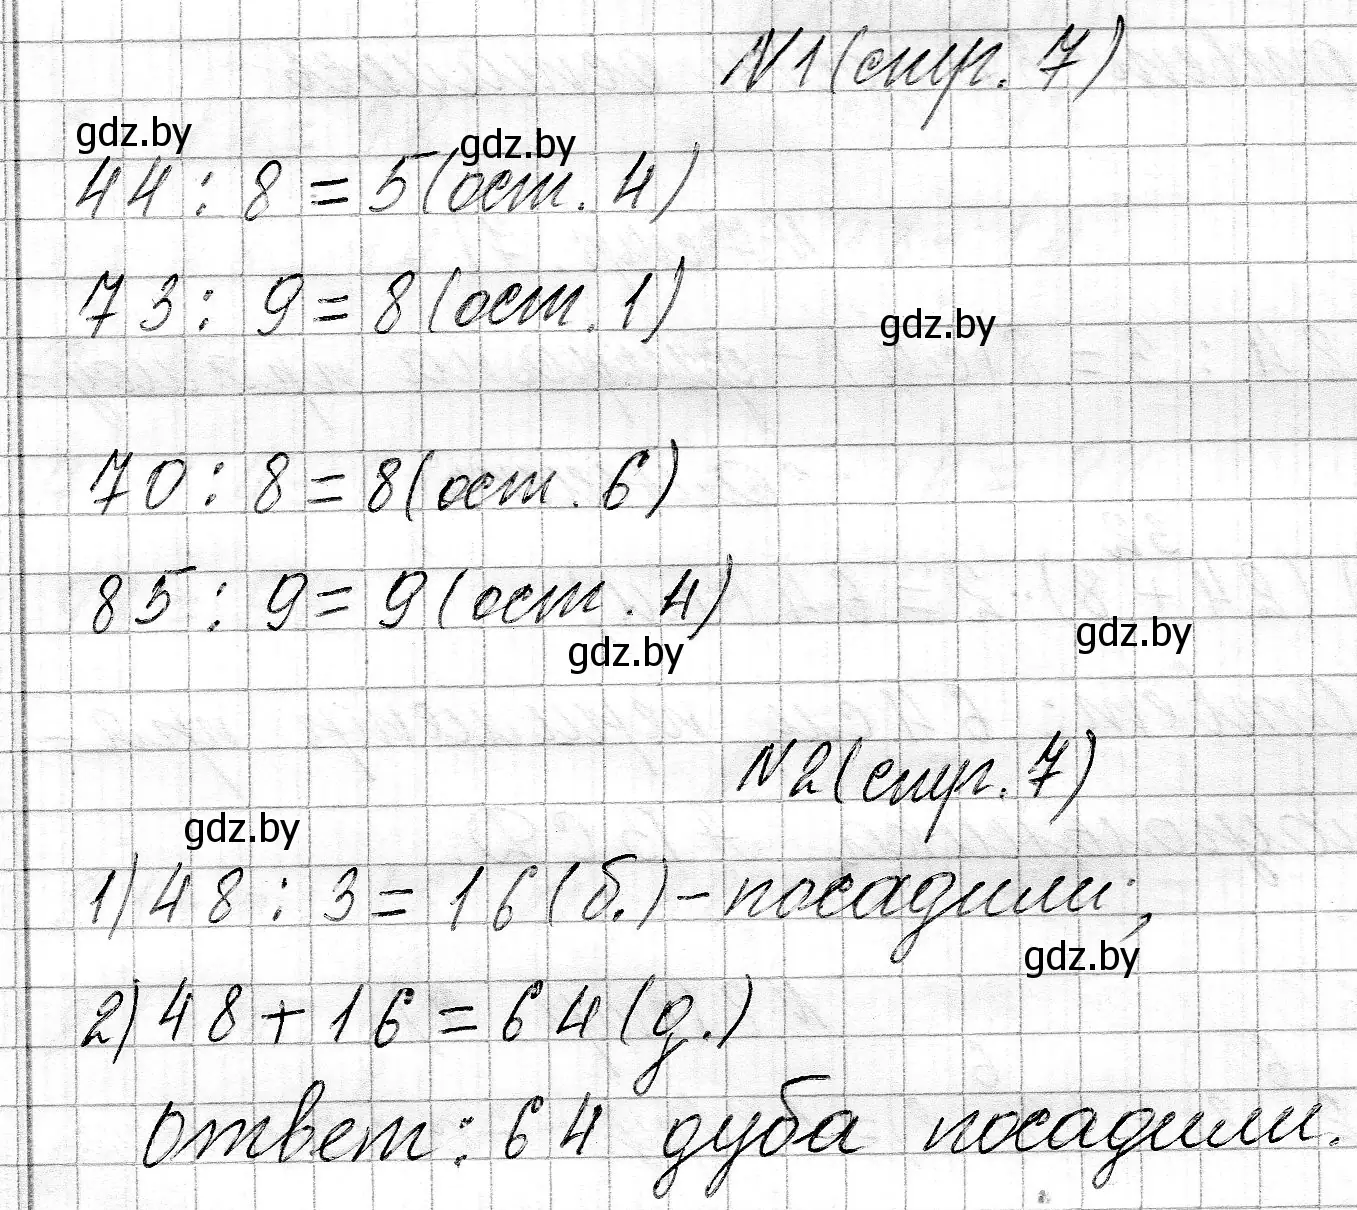 N1 (стр. 7)
gdz.by
gdz.by
44 : 8 = 5 (ост. 4)
73 : 9 = 8 (ост. 1)
gdz.by
70 : 8 = 8 (ост. 6)
85 : 9 = 9 (ост. 4)
gdz.by
gdz.by
N2 (стр. 7)
gdz.by
1) 48 : 3 = 16 (б.) - посадили;
gdz.by
2) 48 + 16 = 64 (д.)
Ответ: 64 дуба посадили.